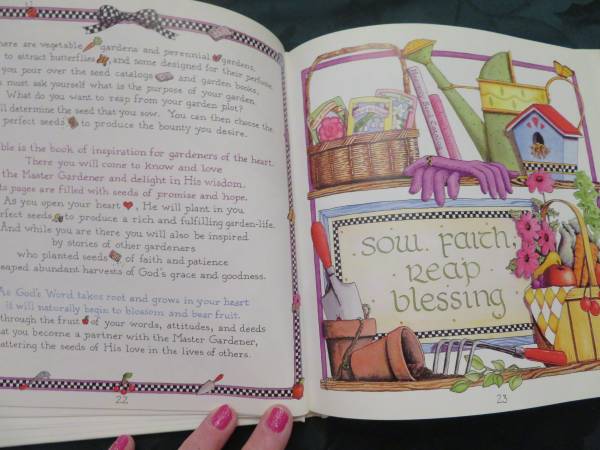 here are vegetable gardens and perennial gardens,
to attract butterflies and some designed for their perfume.
you pour over the seed catalogs and garden books,
must ask yourself what is the purpose of your garden.
What do you want to reap from your garden plot?
determine the seed that you sow. You can then choose the
perfect seeds to produce the bounty you desire.
ble is the book of inspiration for gardeners of the heart.
There you will come to know and love
the Master Gardener and delight in His wisdom.
ts pages are filled with seeds of promise and hope.
As you open your heart, He will plant in you
rfect seeds to produce a rich and fulfilling garden-life.
And while you are there you will also be inspired
by stories of other gardeners
who planted seeds of faith and patience
reaped abundant harvests of God's grace and goodness.
As God's Word takes root and grows in your heart
it will naturally begin to blossom and bear fruit.
through the fruit of your words, attitudes, and deeds
at you become a partner with the Master Gardener,
attering the seeds of His love in the lives of others.
22
Sow faith,
Reap
blessing
23